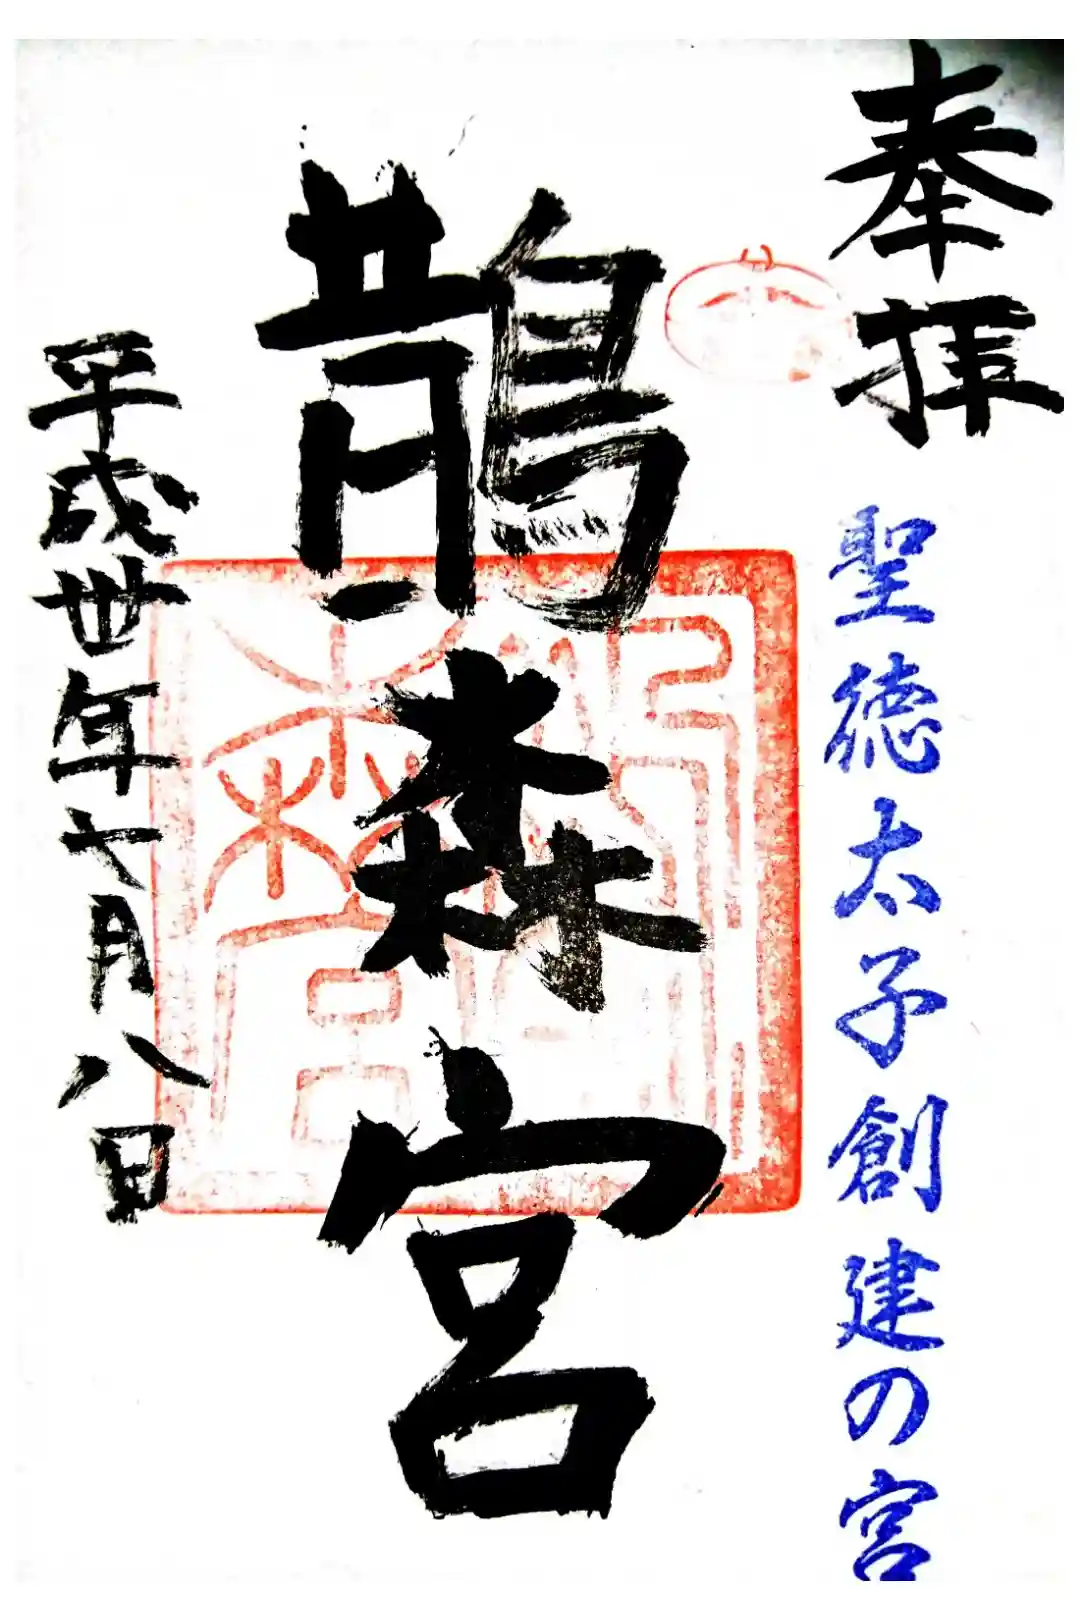 奉拝
聖徳太子創建の宮
鵲森宮
平成卅年七月八日